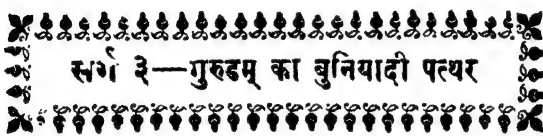 सर्ग ३—गुरुडम् का बुनियादी पत्थर